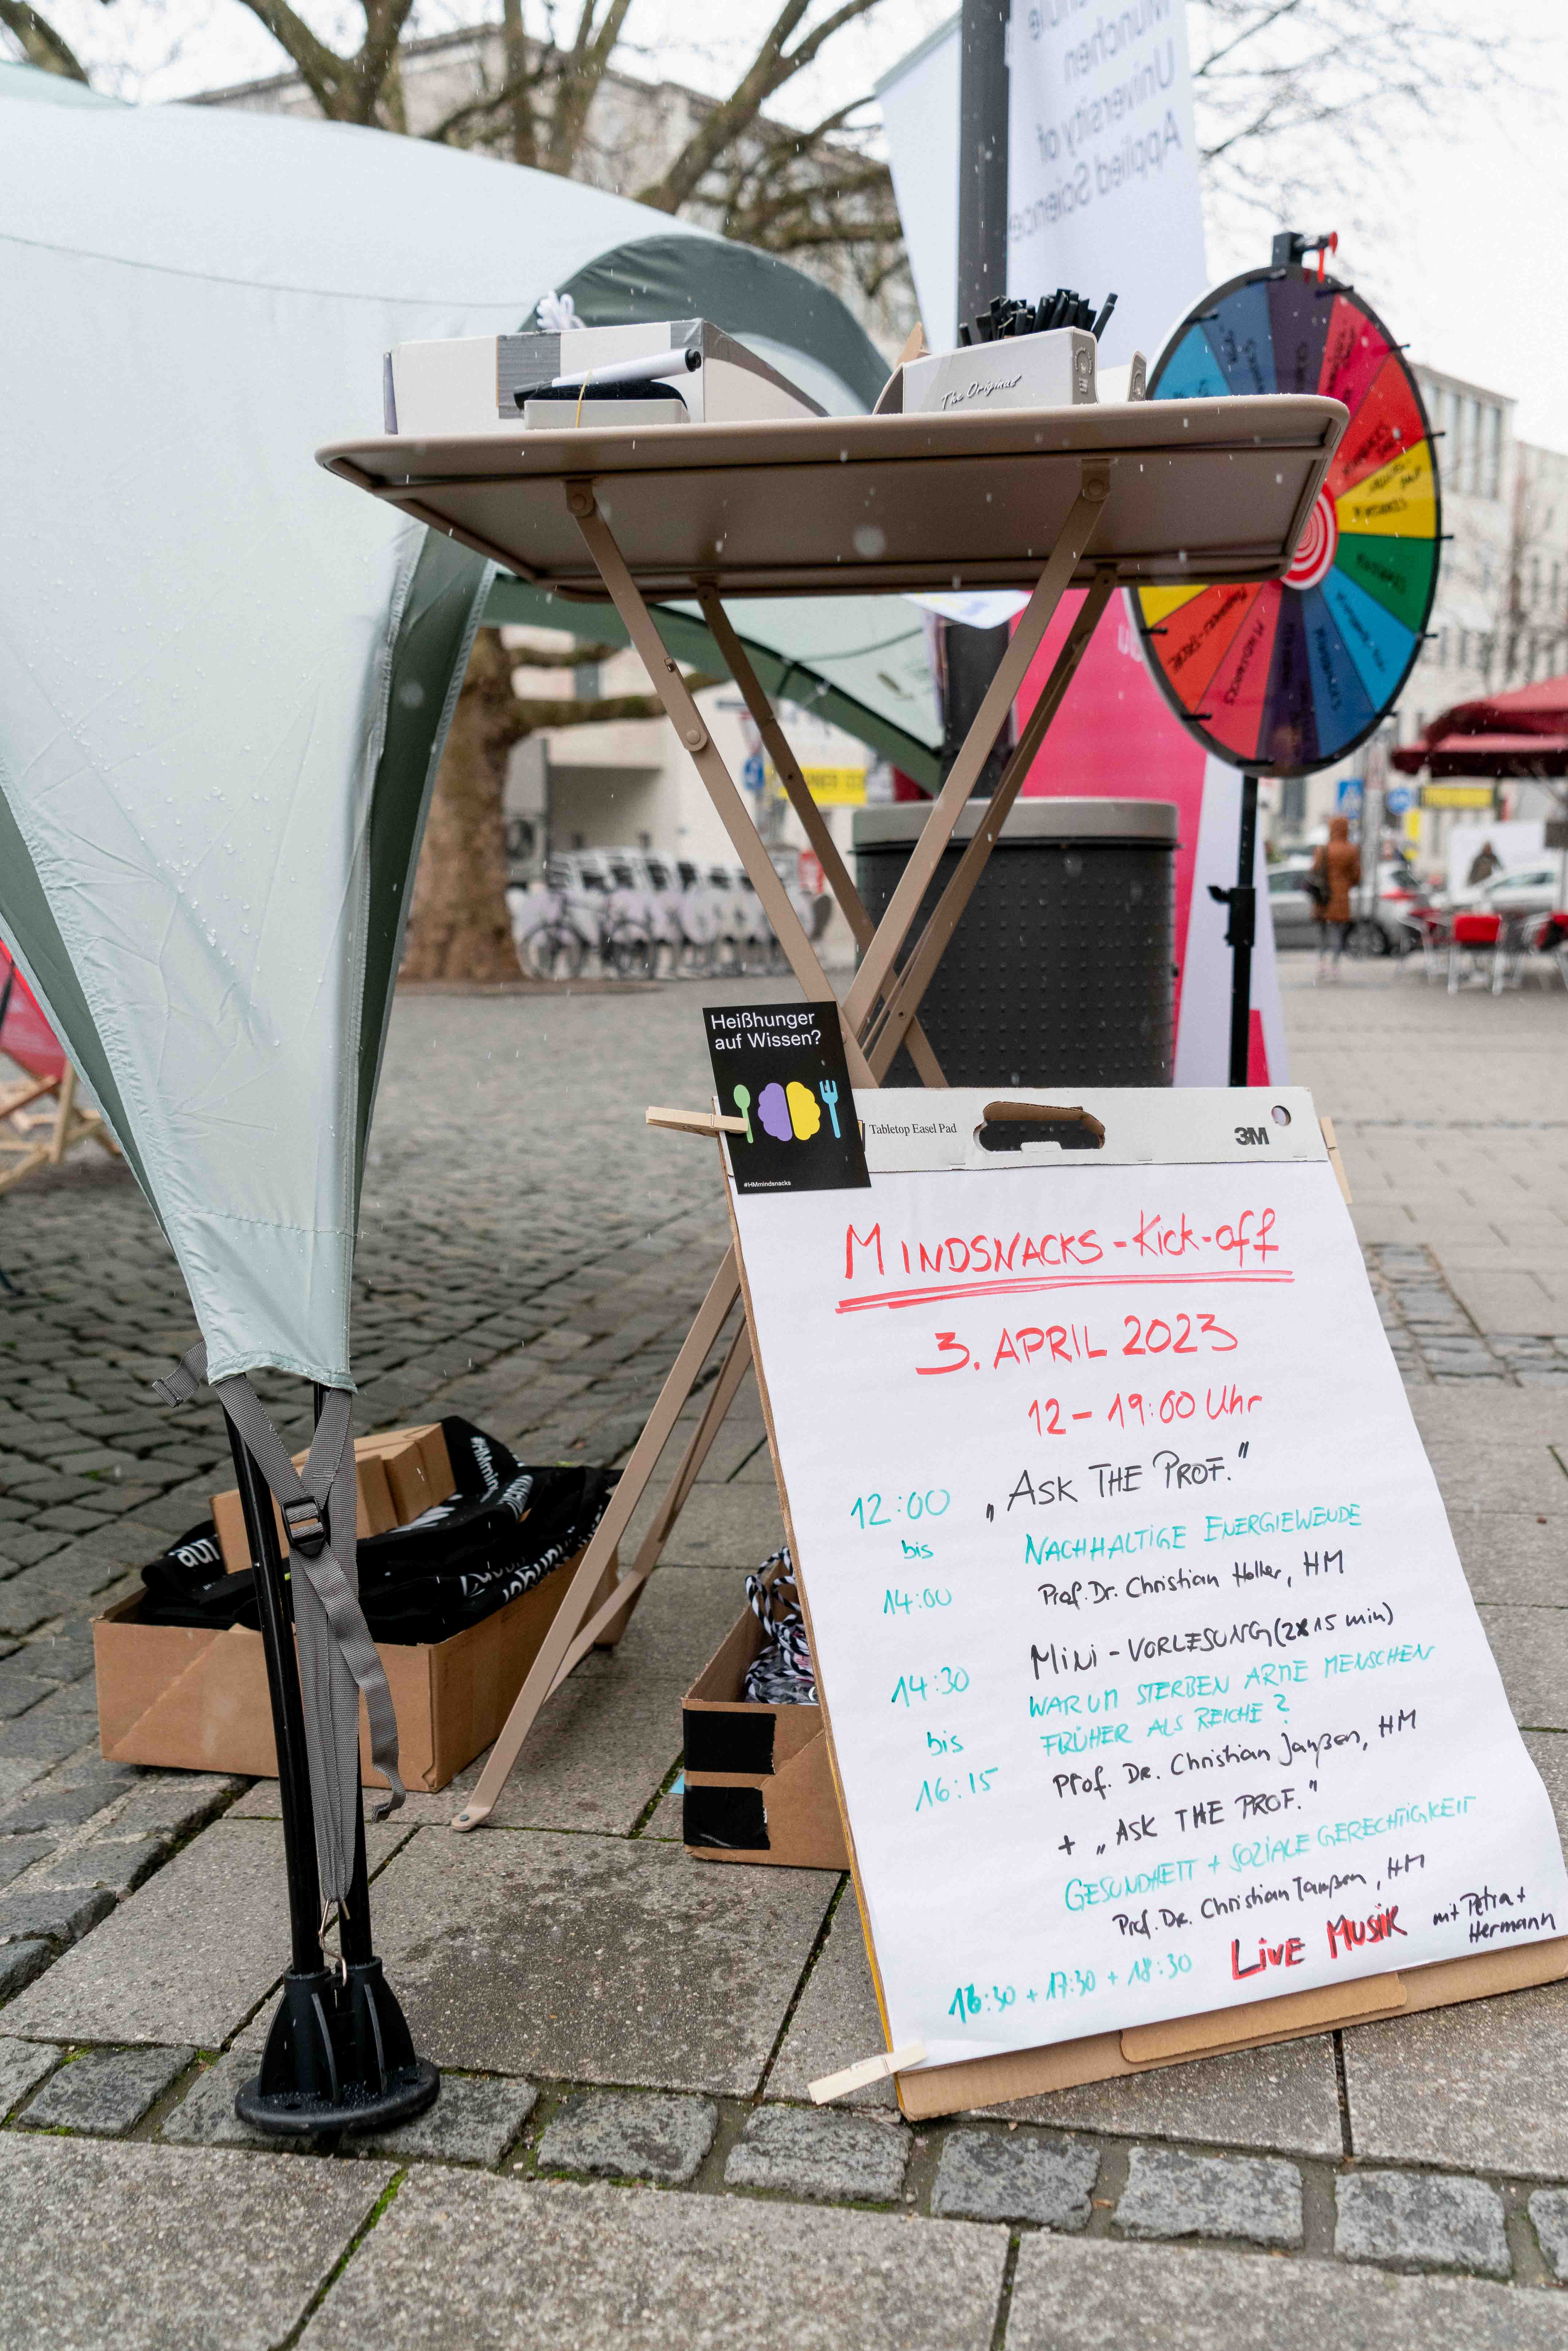 München
University of
Applied Science
The Original
Heißhunger
auf Wissen?
#HMmindsnacks
Tabletop Easel Pad
3M
MINDSNACKS - Kick-off
3. APRIL 2023
12 - 19:00 Uhr
12:00 „ASK THE PROF."
bis NACHHALTIGE ENERGIEWENDE
14:00 Prof. Dr. Christian Holler, HM
MINI - VORLESUNG (2x15 min)
14:30 WARUM STERBEN ARME MENSCHEN
bis FRÜHER ALS REICHE?
16:15 Prof. Dr. Christian Janßen, HM
+ „ASK THE PROF."
GESUNDHEIT + SOZIALE GERECHTIGKEIT
Prof. Dr. Christian Janßen, HM
16:30 + 17:30 + 18:30 LIVE MUSIK mit Petra +
Hermann
#HMmin
MINDSNACKS